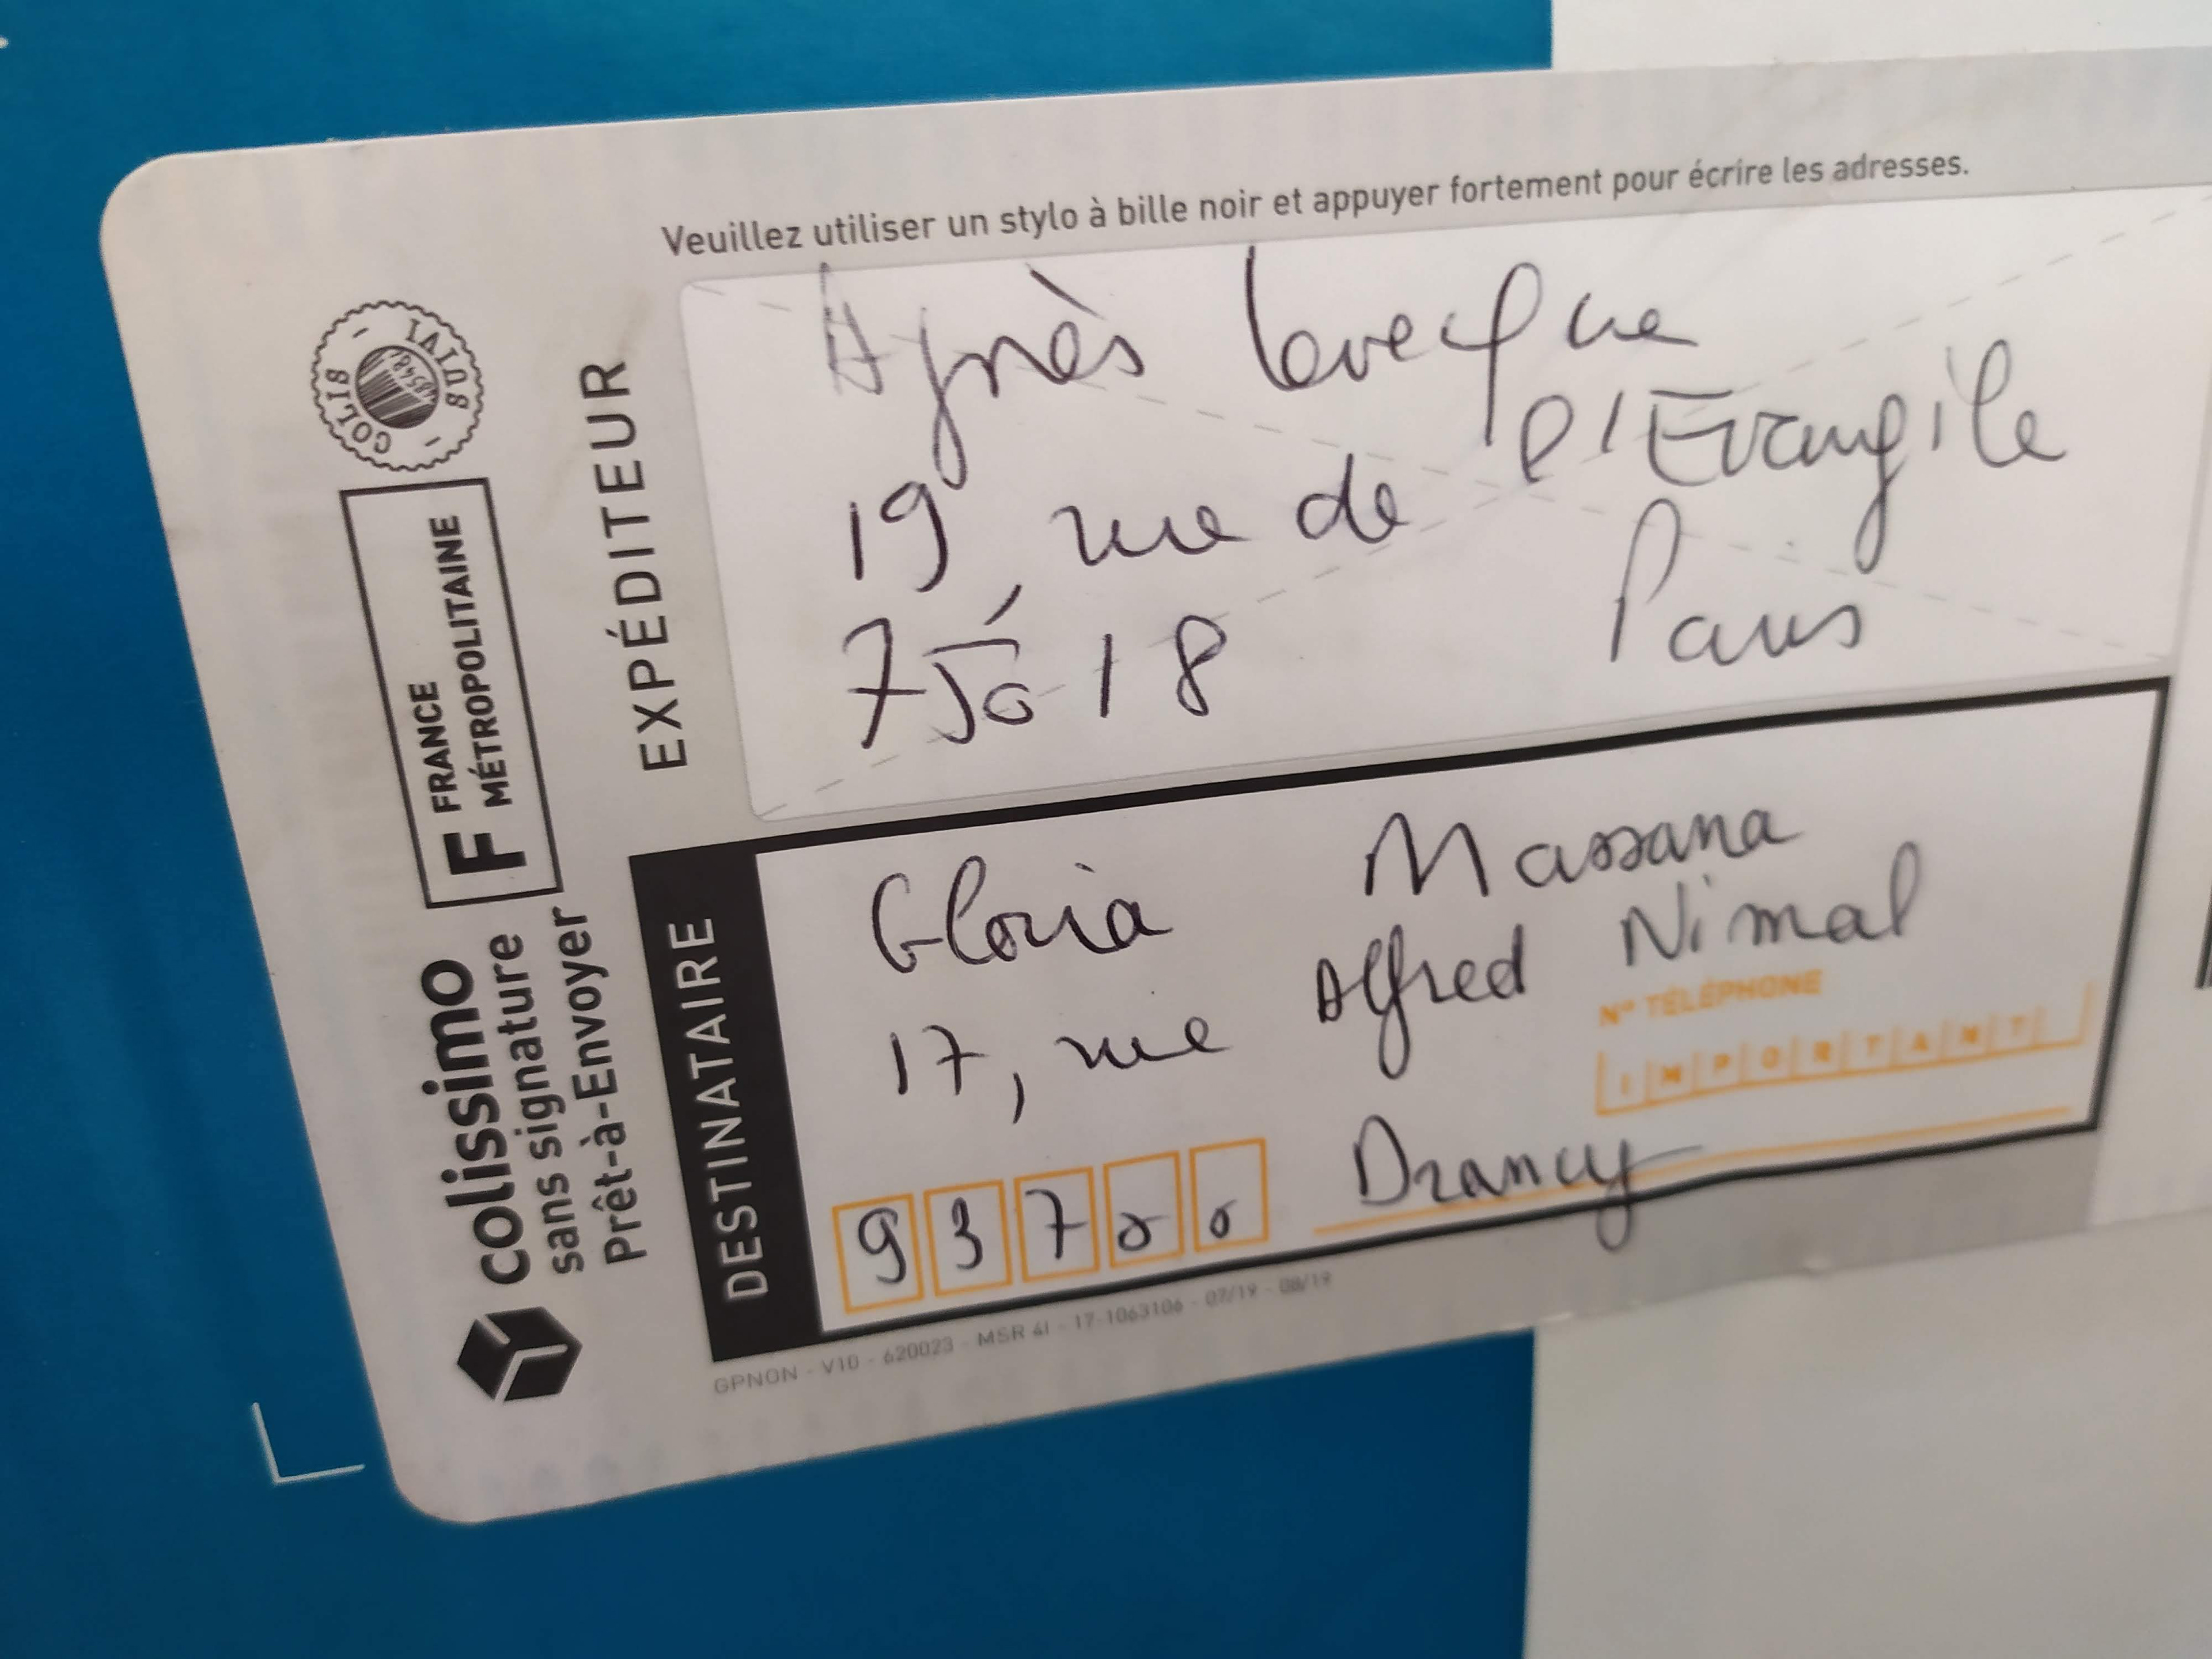 Veuillez utiliser un stylo à bille noir et appuyer fortement pour écrire les adresses.
COLIS - SUIVI -
EXPÉDITEUR
Agnès Levecque
19, rue de l'Evangile
75018 Paris
F FRANCE
MÉTROPOLITAINE
colissimo
sans signature
Prêt-à-Envoyer
DESTINATAIRE
Gloria Massana
17, rue Alfred Nimal
N° TÉLÉPHONE
IMPORTANT
93700 Drancy
GPNON - V10 - 620023 - MSR 41 - 17-1063106 - 07/19 - 08/19